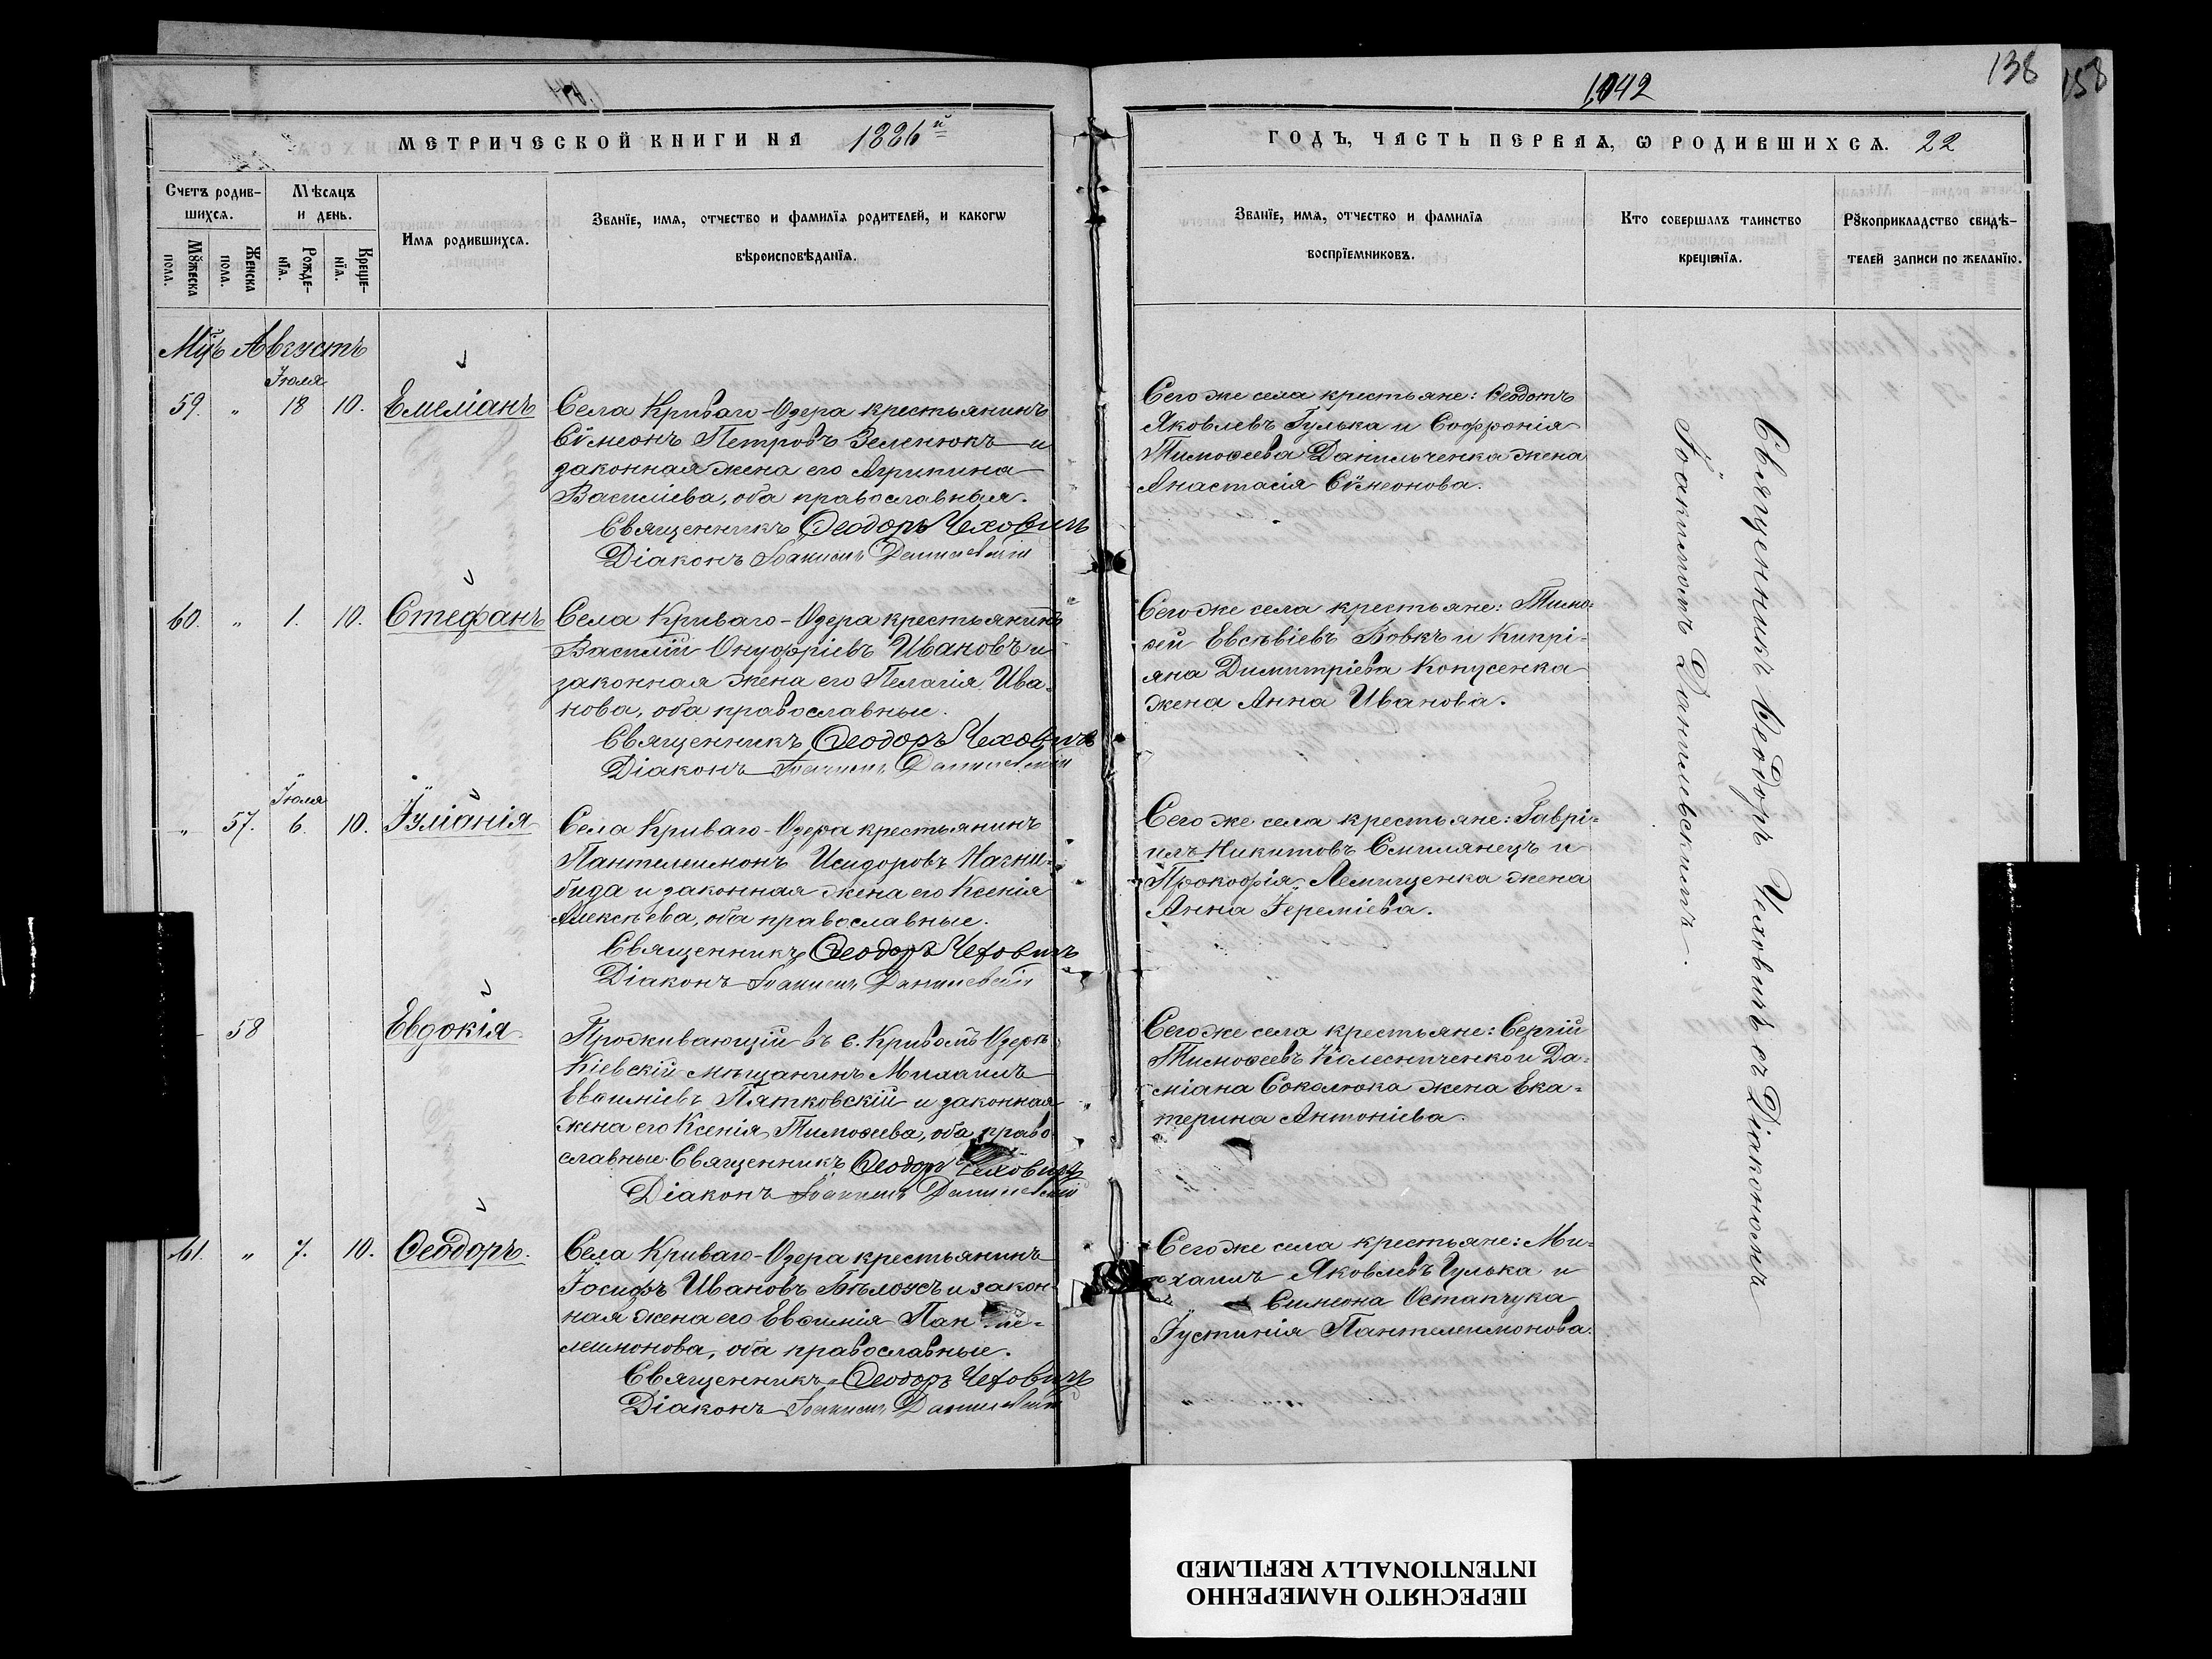 1042
138
158
МЕТРИЧЕСКОЙ КНИГИ НА 1886й
ГОДЪ, ЧАСТЬ ПЕРВАЯ, Ѡ РОДИВШИХСЯ. 22
Счетъ родив-
шихся.
Мѣсяцъ
и день.
Имя родившихся.
Званїе, имя, отчество и фамилїя родителей, и какогѡ
вѣроисповѣданїя.
Мꙋжеска
пола.
Женска
пола.
Рожде-
нїя.
Креще-
нїя.
Званїе, имя, отчество и фамилїя
воспрїемниковъ.
Кто совершалъ таинство
крещенїя.
Рꙋкоприкладство свидѣ-
телей записи по желанїю.
Мцъ Августъ
Іюля
59. " 18 10. Емеліанъ
Села Криваго-Озера крестьянинъ
Сѵмеонъ Петровъ Зеленюкъ и
законная жена его Агрипина
Василіева, оба православныя.
Священникъ Ѳеодоръ Чеховичъ
Діаконъ Іоакимъ Данилевскій
Сего же села крестьяне: Ѳеодотъ
Яковлевъ Гулька и Софронія
Тимоѳеева Данильченка жена
Анастасія Сѵмеонова.
60. " 1. 10. Стефанъ
Села Криваго-Озера крестьянинъ
Василій Онуфріевъ Ивановъ и
законная жена его Пелагія Ива-
нова, оба православные.
Священникъ Ѳеодоръ Чеховичъ
Діаконъ Іоакимъ Данилевскій
Сего же села крестьяне: Тимо-
ѳей Евсѣвіевъ Вовкъ и Кипрі-
яна Димитріева Копусенка
жена Анна Иванова.
Іюля
" 57. 6. 10. Іуліанія
Села Криваго-Озера крестьянинъ
Пантелеимонъ Исидоровъ Нагни-
бида и законная жена его Ксенія
Алексѣева, оба православные.
Священникъ Ѳеодоръ Чеховичъ
Діаконъ Іоакимъ Данилевскій
Сего же села крестьяне: Гаврі-
илъ Никитовъ Смилянецъ и
Прокофія Лемищенка жена
Анна Іереміева.
58 Евдокія
Проживающій въ с. Кривомъ Озерѣ
Кіевскій мѣщанинъ Михаилъ
Евѳиміевъ Пятковскій и законная
жена его Ксенія Тимоѳеева, оба право-
славные. Священникъ Ѳеодоръ Чеховичъ
Діаконъ Іоакимъ Данилевскій
Сего же села крестьяне: Сергій
Тимоѳеевъ Колесниченко и Да-
міана Соколюка жена Ека-
терина Антоніева.
61. " 7. 10. Ѳеодоръ.
Села Криваго-Озера крестьянинъ
Іосифъ Ивановъ Бѣлоусъ и закон-
ная жена его Евѳимія Панте-
леимонова, оба православные.
Священникъ Ѳеодоръ Чеховичъ
Діаконъ Іоакимъ Данилевскій
Сего же села крестьяне: Ми-
хаилъ Яковлевъ Гулька и
Симеона Остапчука
Іустинія Пантелеимонова.
Священникъ Ѳеодоръ Чеховичъ съ Діакономъ
Іоакимомъ Данилевскимъ.
ПЕРЕСНЯТО НАМЕРЕННО
INTENTIONALLY REFILMED